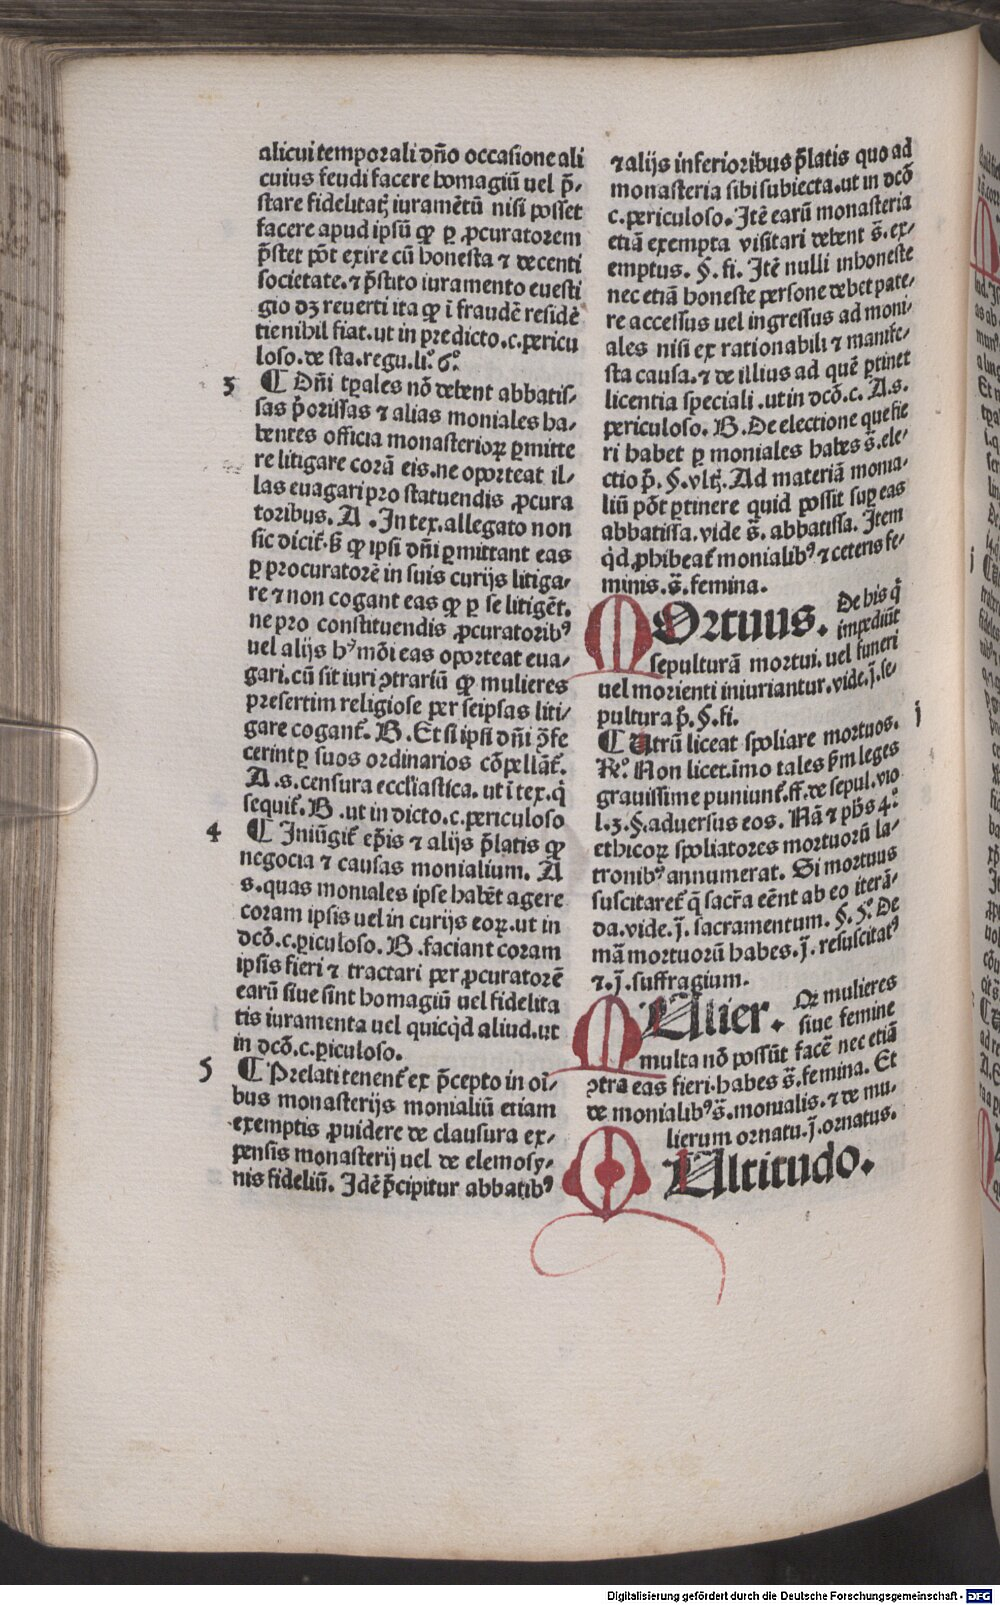 alicui temporali dño occasione ali
cuius feudi facere homagiũ uel p̃-
stare fidelitatȝ iuramẽtũ nisi posset
facere apud ipsũ ꝙ ꝑ ꝓcuratorem
p̃stet põt exire cũ honesta ⁊ decenti
societate. ⁊ p̃stito iuramento euesti
gio dȝ reuerti ita ꝙ ĩ fraudẽ residẽ
tie nihil fiat. ut in predicto .c. pericu
loso. de sta. regu. li.° 6.°
3 ¶ Dñi tꝑales nõ debent abbatis-
sas p̃orissas ⁊ alias moniales ha-
bentes officia monasterioꝝ ꝑmitte
re litigare corã eis. ne oporteat il-
las euagari pro statuendis ꝓcura
toribus. A . In tex. allegato non
sic dicit̃. s̃ ꝙ ipsi dñi ꝑmittant eas
ꝑ procuratorẽ in suis curijs litiga-
re ⁊ non cogant eas ꝙ ꝑ se litigẽt.
ne pro constituendis ꝓcuratoribꝰ
uel alijs hꝰ mõi eas oporteat eua-
gari. cũ sit iuri ꝯtrariũ ꝙ mulieres
presertim religiose per seipsas liti-
gare cogant̃. B . Et si ipsi dñi õfe
cerint ꝑ suos ordinarios cõpellãt̃.
A .s. censura eccl'iastica. ut ĩ tex. q̃
sequit̃. B . ut in dicto .c. periculoso
4 ¶ Iniũgit̃ ep̃is ⁊ alijs p̃latis ꝙ
negocia ⁊ causas monialium. A
.s. quas moniales ipse habẽt agere
coram ipsis uel in curijs eoꝝ. ut in
dcõ. c. ꝑiculoso. B . faciant coram
ipsis fieri ⁊ tractari per ꝓcuratorẽ
earũ siue sint homagiũ uel fidelita
tis iuramenta uel quicq̇d aliud. ut
in dcõ. c. ꝑiculoso.
5 ¶ Prelati tenent̃ ex p̃cepto in oĩ-
bus monasterijs monialiũ etiam
exemptis ꝓuidere de clausura ex-
pensis monasterij uel de elemosy-
nis fideliũ. Idẽ p̃cipitur abbatibꝰ
⁊ alijs inferioribus p̃latis quo ad
monasteria sibi subiecta. ut in dcõ
c. periculoso. Itẽ earũ monasteria
etiã exempta visitari debent s̃. ex-
emptus. §. fi. Itẽ nulli inhoneste
nec etiã honeste persone debet pate-
re accessus uel ingressus ad moni-
ales nisi ex rationabili ⁊ manife-
sta causa. ⁊ de illius ad quẽ ꝑtinet
licentia speciali . ut in dcõ. c. A .s.
periculoso. B . De electione que fie
ri habet ꝑ moniales habes s̃. ele-
ctio p̃. §. vltȝ. Ad materiã monia-
liũ põt ꝑtinere quid possit suꝑ eas
abbatissa. vide s̃. abbatissa. Item
q̇d ꝓhibeat̃ monialibꝰ ⁊ ceteris fe-
minis. s̃. femina.
MOrtuus. De his q̃
impediũt
sepulturã mortui. uel funeri
uel morienti iniuriantur. vide. j̃. se-
pultura p̃. §. fi.
¶ Utrũ liceat spoliare mortuos. j
R.° Non licet. imo tales s̃m leges
grauissime puniunt̃. ff. de sepul. vio
l. 3. §. aduersus eos. Nã ⁊ ph̃s 4.°
ethicoꝝ spoliatores mortuorũ la-
tronibꝰ annumerat. Si mortuus
suscitaret̃ q̃ sacr̃a eẽnt ab eo iterã-
da. vide. j̃. sacramentum. §. 5.° De
mã mortuorũ habes. j̃. resuscitatꝰ
⁊. j̃. suffragium.
MUlier. Oꝝ mulieres
siue femine
multa nõ possũt facẽ nec etiã
ꝯtra eas fieri. habes s̃. femina. Et
de monialibꝰ s̃. monialis. ⁊ de mu-
lierum ornatu. j̃. ornatus.
MUltitudo.
Digitalisierung gefördert durch die Deutsche Forschungsgemeinschaft - DFG